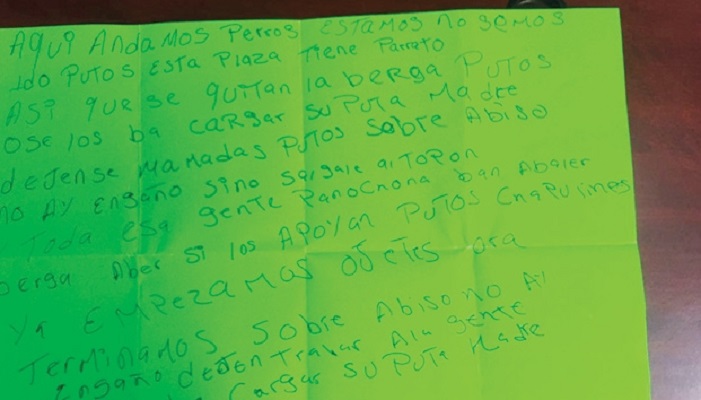 AQUI ANDAMOS Perros ESTAMOS no SEMOS
IdO PUTOS ESTA PlAZA Tiene Parrato
ASI que se quitan la berga PUTOS
OSE los ba CARGAr Su PUTA MAdre
dejense MAMADAS PUTOS Sobre AbISO
no Ay Engaño Sino Salgale al TOPON
Toda Esa gente PANOCHONA ban Abaler
berga Aber SI los APOYAN PUTOS CHAPULINES
YA EMPEZAMOS OJETES ora
TERMINAMOS Sobre AbISO no AY
Engaño dejen TrabAr Ala gente
CArgar SU PUTA MAdre